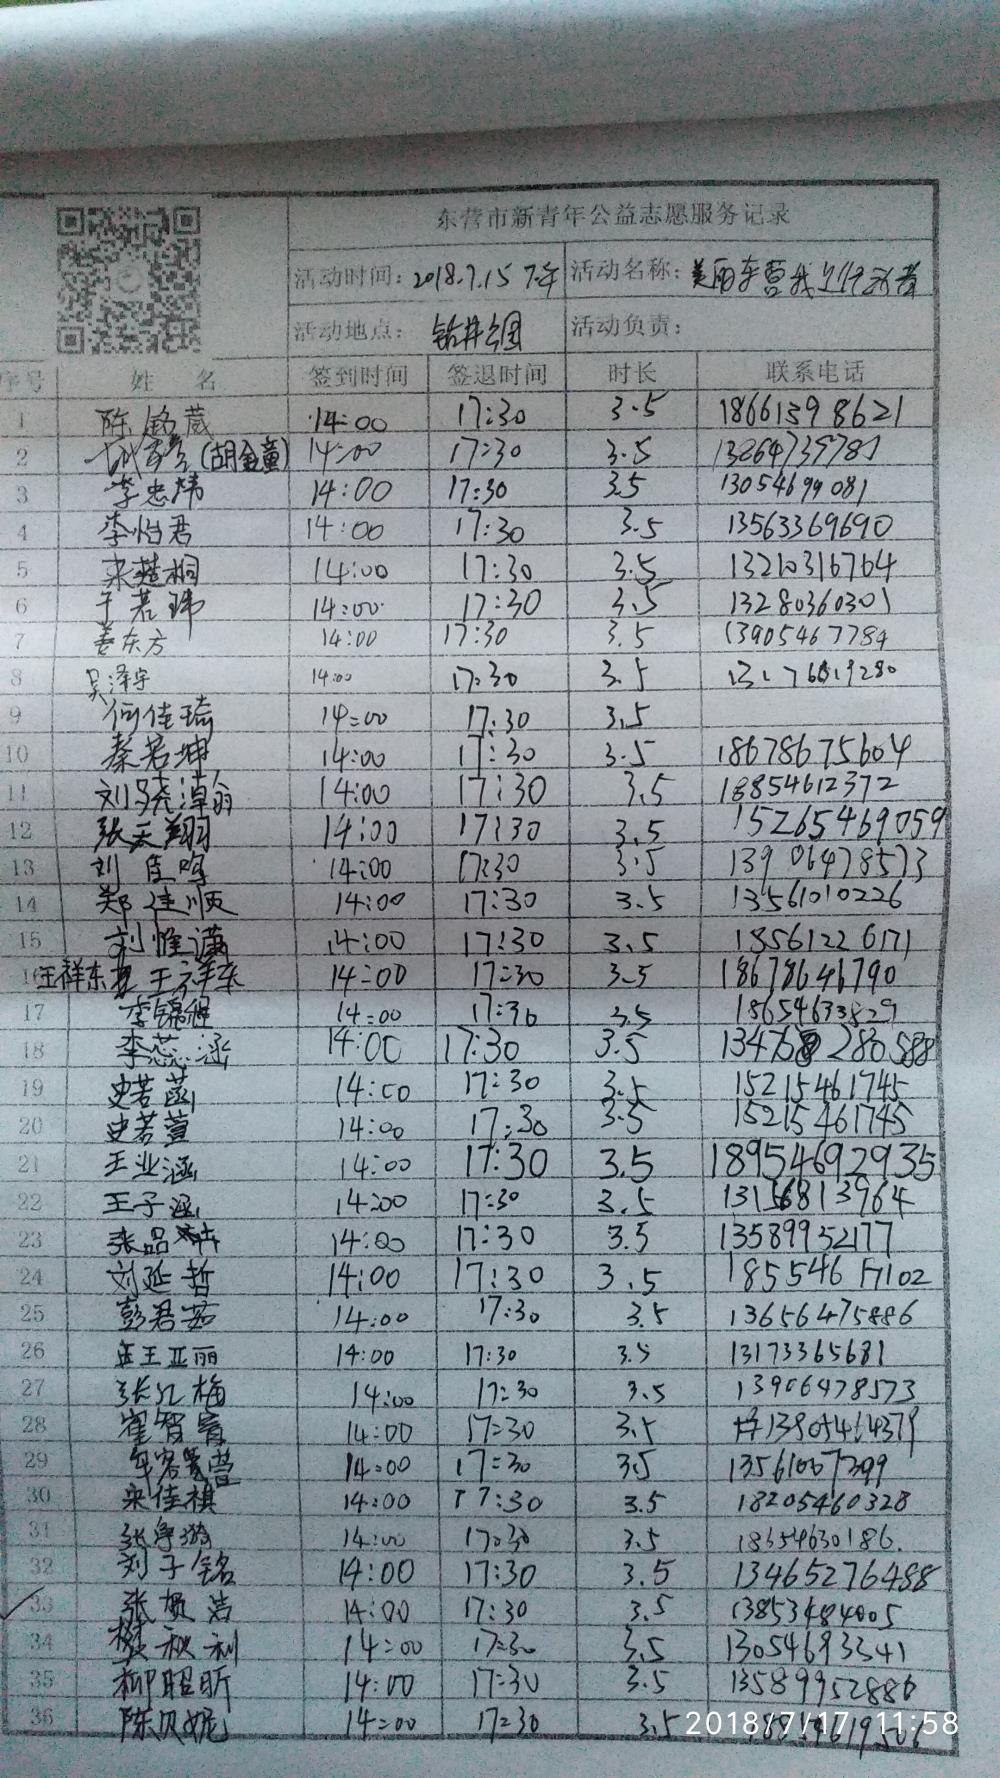 东营市新青年公益志愿服务记录
活动时间: 2018.7.15 下午 活动名称: 美丽东营我
活动地点: 钻井公园 活动负责:
序号 姓 名 签到时间 签退时间 时长 联系电话
1 陈铭葳 14:00 17:30 3.5 18661398621
2 (胡金童) 14:00 17:30 3.5 13264739781
3 李忠炜 14:00 17:30 3.5 13054699081
4 李怡君 14:00 17:30 3.5 13563369690
5 宋楚桐 14:00 17:30 3.5 13210316764
6 于若琳 14:00 17:30 3.5 13280360301
7 姜东方 14:00 17:30 3.5 13905467784
8 吴泽宇 14:00 17:30 3.5
9 何佳琦 14:00 17:30 3.5
10 秦若坤 14:00 17:30 3.5 18678675604
11 刘晓漳翁 14:00 17:30 3.5 18854612372
12 张天翔 14:00 17:30 3.5 15265469059
13 刘佳鸣 14:00 17:30 3.5 13906478573
14 郑佳顺 14:00 17:30 3.5 13561010226
15 刘惟潇 14:00 17:30 3.5 18561226171
16 王祥东 王祥东 14:00 17:30 3.5 18678646790
17 李锦程 14:00 17:30 3.5 18654633829
18 李蕊涵 14:00 17:30 3.5
19 史若菡 14:00 17:30 3.5 15215461745
20 史若萱 14:00 17:30 3.5 15215461745
21 王业涵 14:00 17:30 3.5 18954692935
22 王子涵 14:00 17:30 3.5 13156813964
23 张品 14:00 17:30 3.5 13589952177
24 刘延哲 14:00 17:30 3.5 18554617102
25 彭君茹 14:00 17:30 3.5 13656475886
26 王亚丽 14:00 17:30 3.5 13173365681
27 张红梅 14:00 17:30 3.5 13906478573
28 崔智睿 14:00 17:30 3.5
29 14:00 17:30 3.5 13561007399
30 宋佳祺 14:00 17:30 3.5 18205460328
31 14:00 17:30 3.5 18654630186
32 刘子铭 14:00 17:30 3.5 13465276488
33 张贺洁 14:00 17:30 3.5 13853484005
34 樊秋利 14:00 17:30 3.5 13054693341
35 柳昭昕 14:00 17:30 3.5 13589952886
36 陈贝妮 14:00 17:30 3.5
2018/7/17 11:58